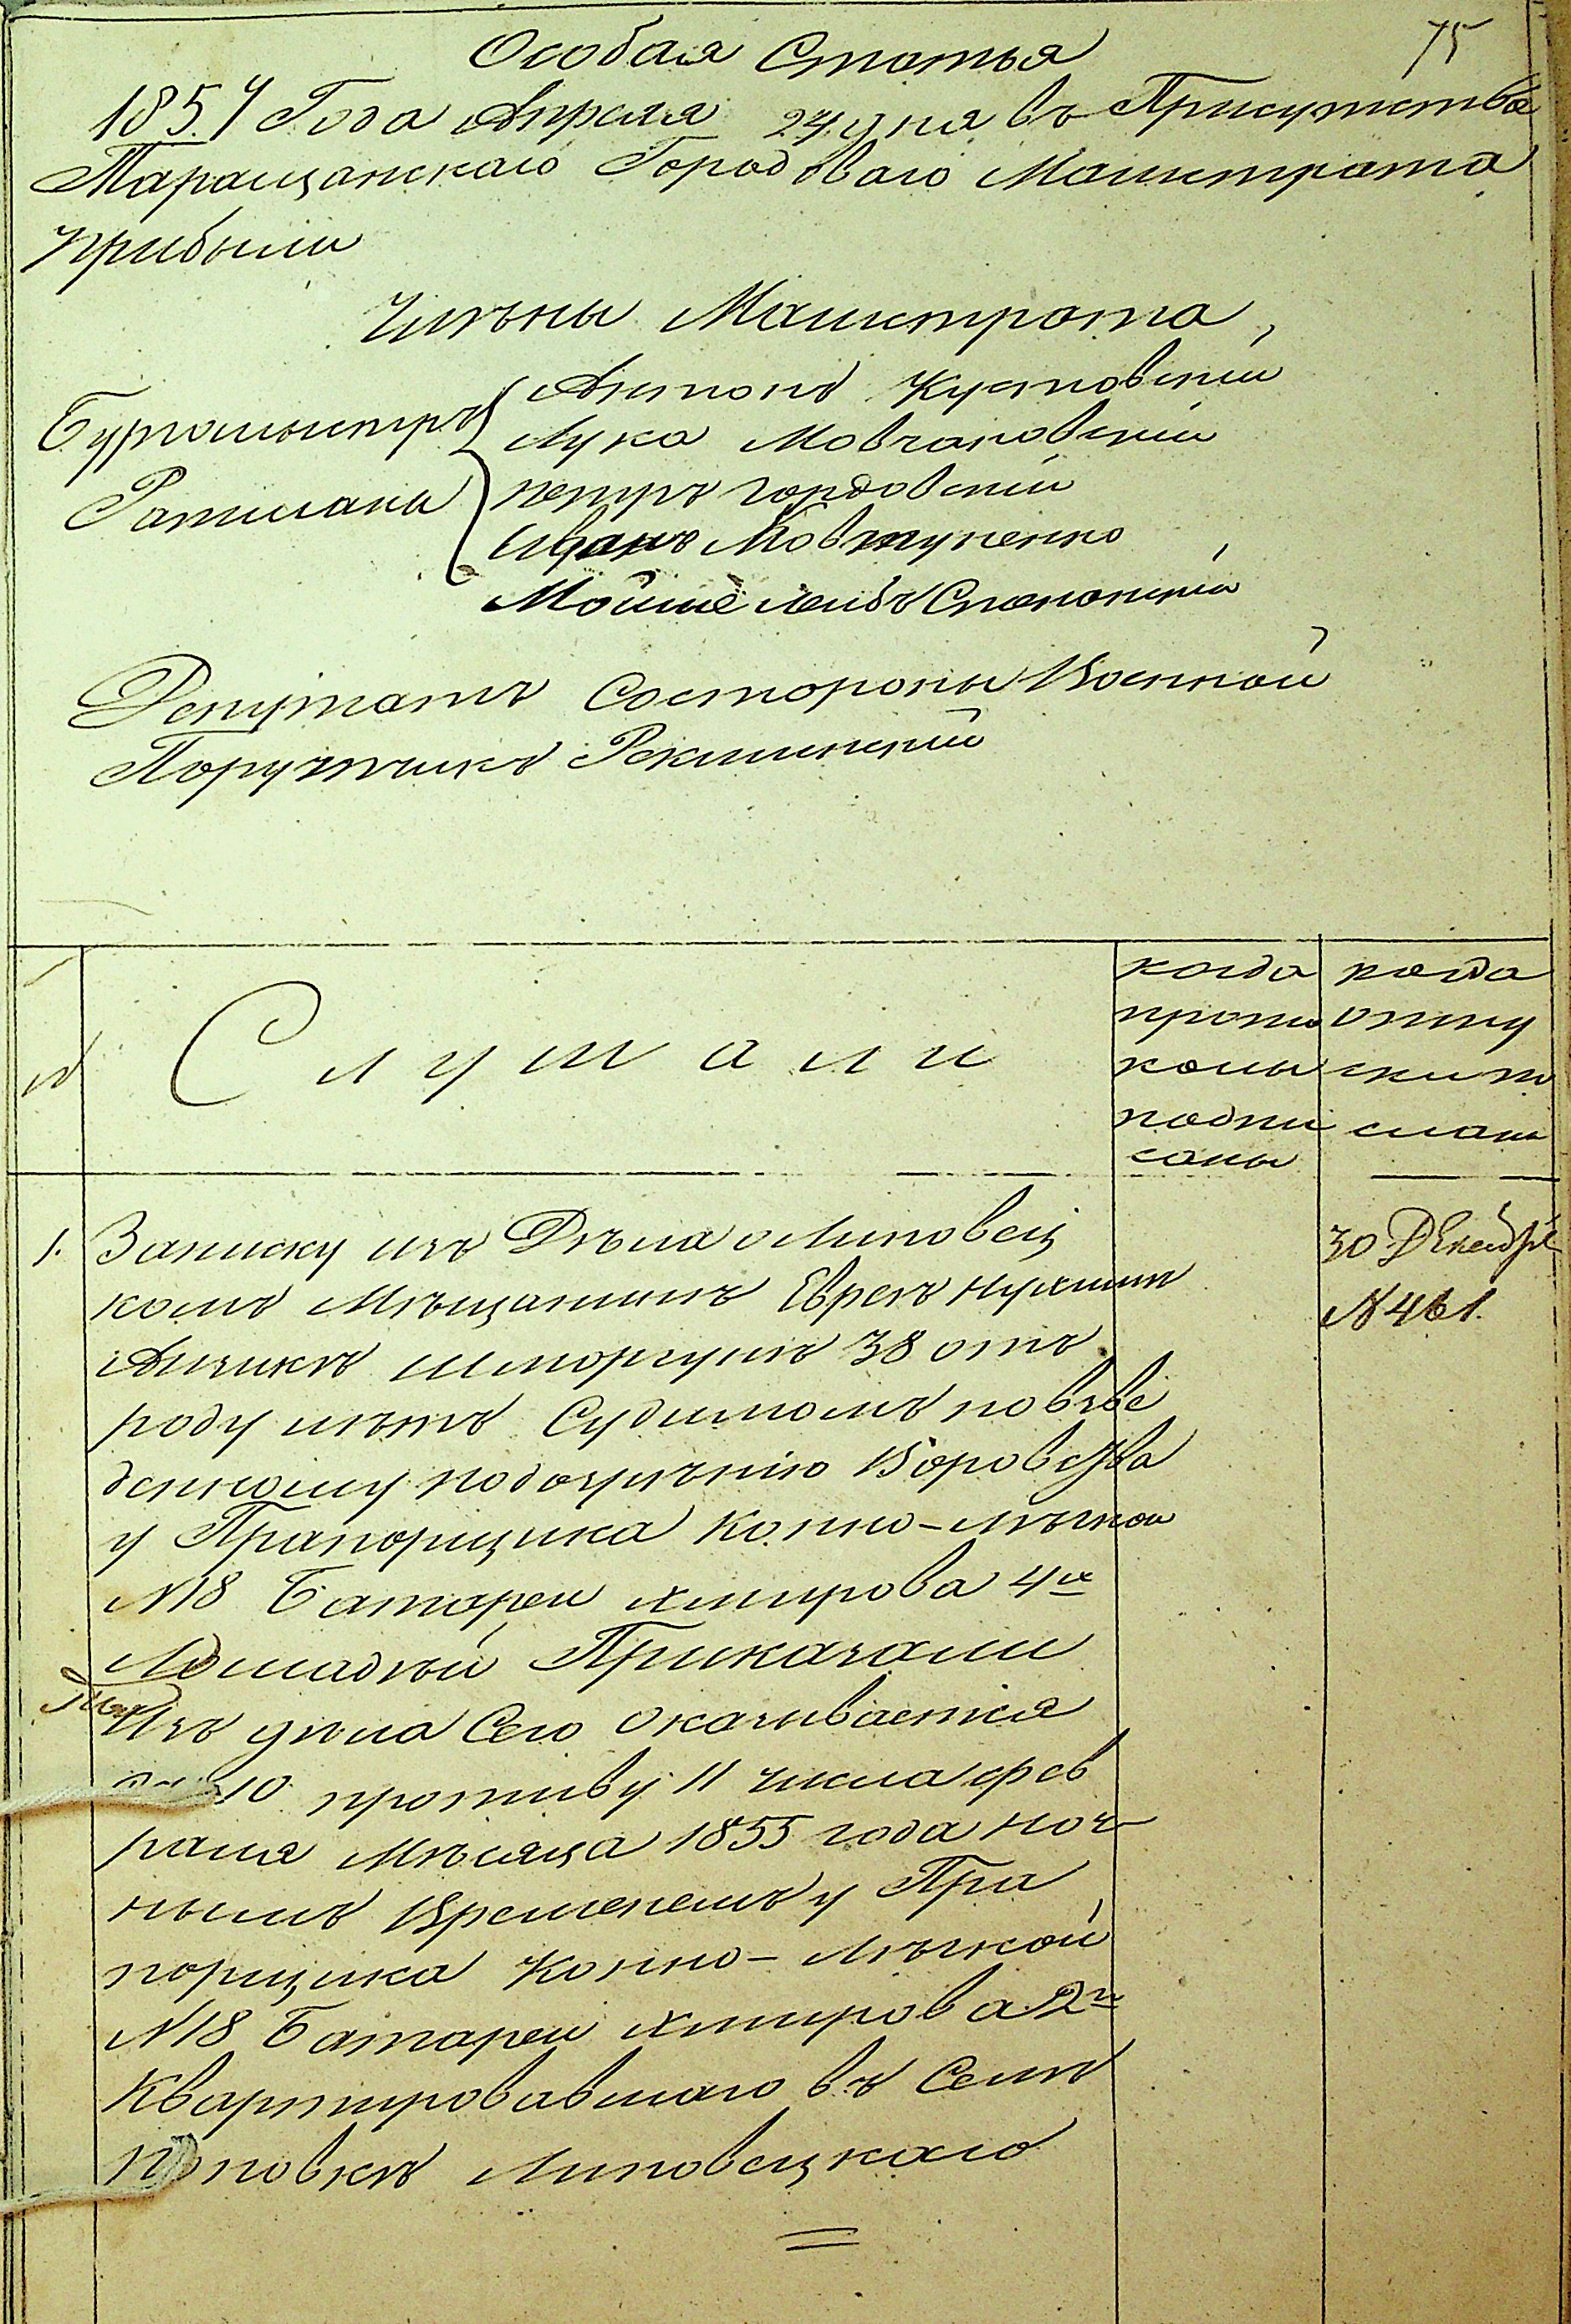 Особая Статья
75
1857 Года Апреля 24 дня въ Присутствіе
Таращанскаго Городоваго Магистрата
прибыли
Члѣны Магистрата
Бургомистръ
Ратманы
Антонъ Кустовскій
Лука Мовчановскій
петръ гордовскій
Иванъ Мовтуненко
Мойше лейбъ
Депутатъ Состороны Военной
Порутчикъ
№
Слушали
когда
прото
колы
подпи
саны
когда
отпу
ски по
сланы
1.
Записку изъ Дѣла о Липовец
комъ Мѣщанинѣ Евреѣ Нухимѣ
Айзикѣ 38 отъ
роду лѣтъ Судимомъ по взве
денному подозрѣнію Воровства
у Прапорщика Конно-лѣгкой
№18 Батареи Хмирова 4х
Лошадѣй Приказали
Изъ дѣла Сего Оказывается
10 противу 11 числа фев
раля Мѣсяца 1855 года ноч
нымъ Временемъ у Пра
порщика Конно-Лѣгкой
№18 Батареи Хмирова 2го
Квартировавшаго въ Селѣ
Поповкѣ Липовецкаго
30 Декабря
№ 461.